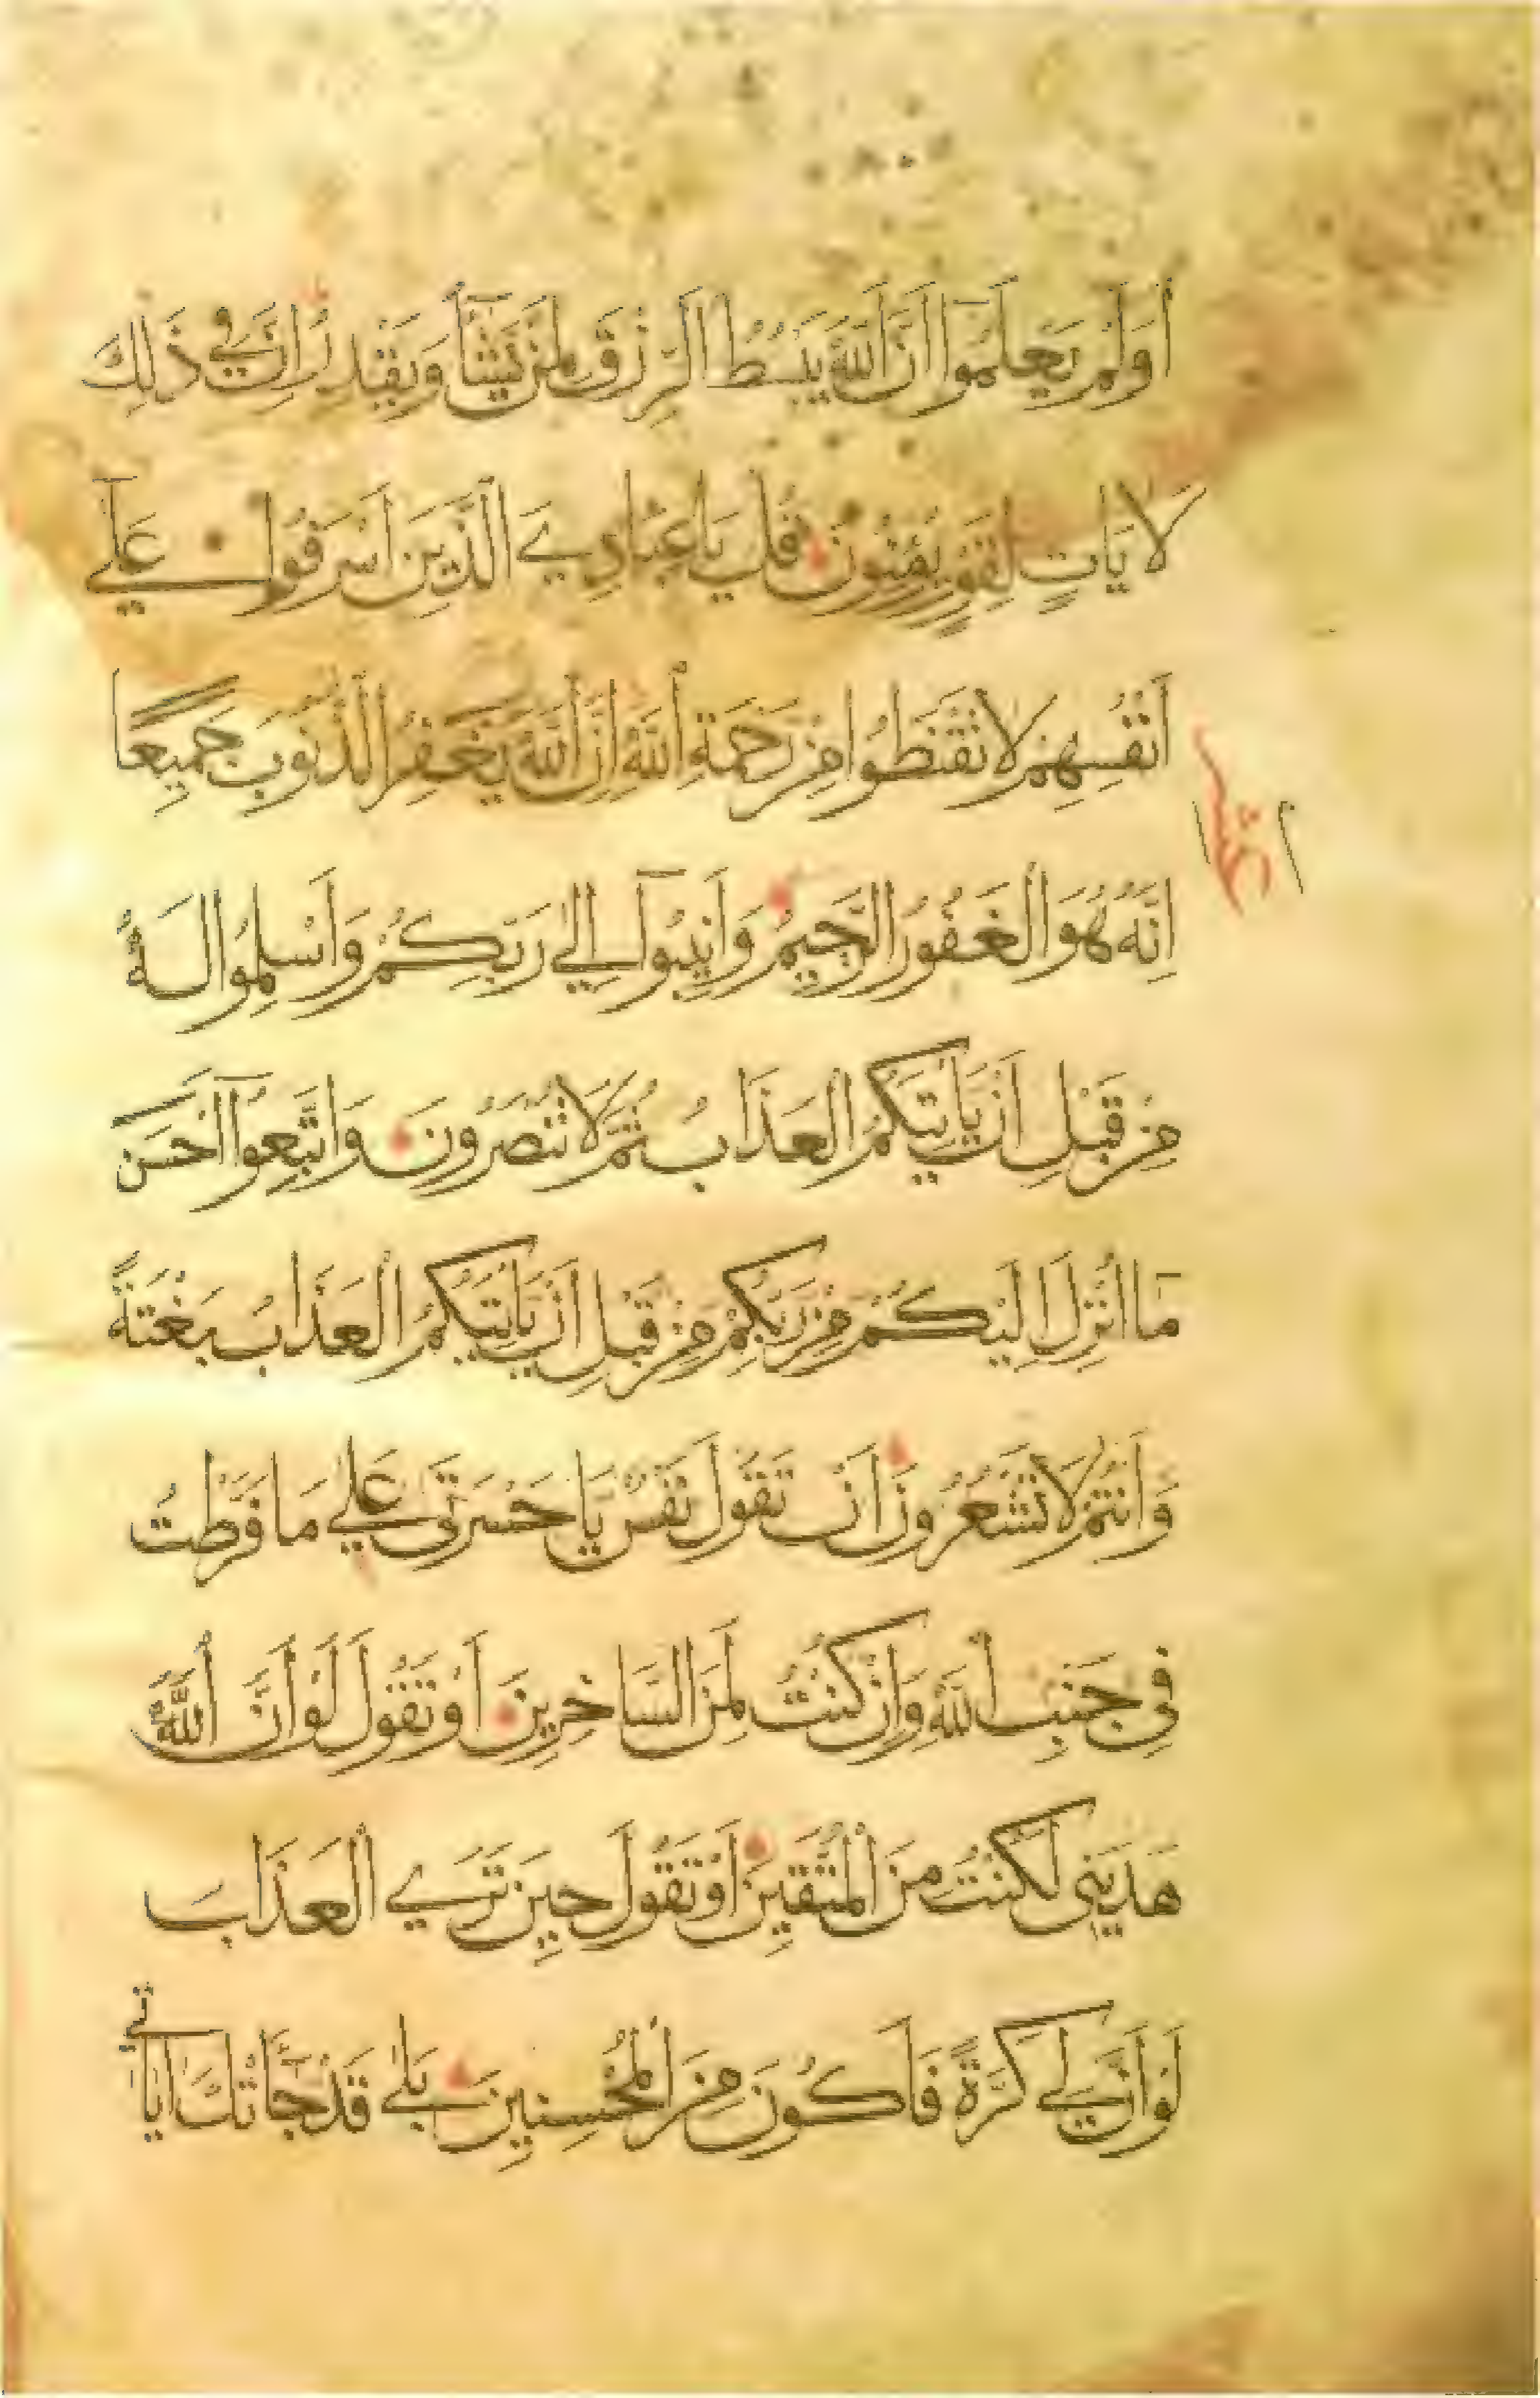 أَوَلَمْ يَعْلَمُوا أَنَّ اللّٰهَ يَبْسُطُ الرِّزْقَ لِمَنْ يَشَآءُ وَيَقْدِرُ اِنَّ فِي ذٰلِكَ
لَايَاتٍ لِقَوْمٍ يُؤْمِنُونَ قُلْ يَاعِبَادِيَ الَّذِينَ اَسْرَفُوا عَلَىٓ
اَنْفُسِهِمْ لَا تَقْنَطُوا مِنْ رَحْمَةِ اللّٰهِ اِنَّ اللّٰهَ يَغْفِرُ الذُّنُوبَ جَمِيعًا
اِنَّهُ هُوَ الْغَفُورُ الرَّحِيمُ وَاَنِيبُوٓا اِلٰي رَبِّكُمْ وَاَسْلِمُوا لَهُ
مِنْ قَبْلِ اَنْ يَاْتِيَكُمُ الْعَذَابُ ثُمَّ لَا تُنْصَرُونَ وَاتَّبِعُوٓا اَحْسَنَ
مَآ اُنْزِلَ اِلَيْكُمْ مِنْ رَبِّكُمْ مِنْ قَبْلِ اَنْ يَاْتِيَكُمُ الْعَذَابُ بَغْتَةً
وَاَنْتُمْ لَا تَشْعُرُونَ اَنْ تَقُولَ نَفْسٌ يَاحَسْرَتَي عَلٰي مَا فَرَّطْتُ
فِي جَنْبِ اللّٰهِ وَاِنْ كُنْتُ لَمِنَ السَّاخِرِينَ اَوْ تَقُولَ لَوْ اَنَّ اللّٰهَ
هَدَيٰنِي لَكُنْتُ مِنَ الْمُتَّقِينَ اَوْ تَقُولَ حِينَ تَرَي الْعَذَابَ
لَوْ اَنَّ لِي كَرَّةً فَاَكُونَ مِنَ الْمُحْسِنِينَ بَلٰي قَدْ جَآءَتْكَ اٰيَاتِي